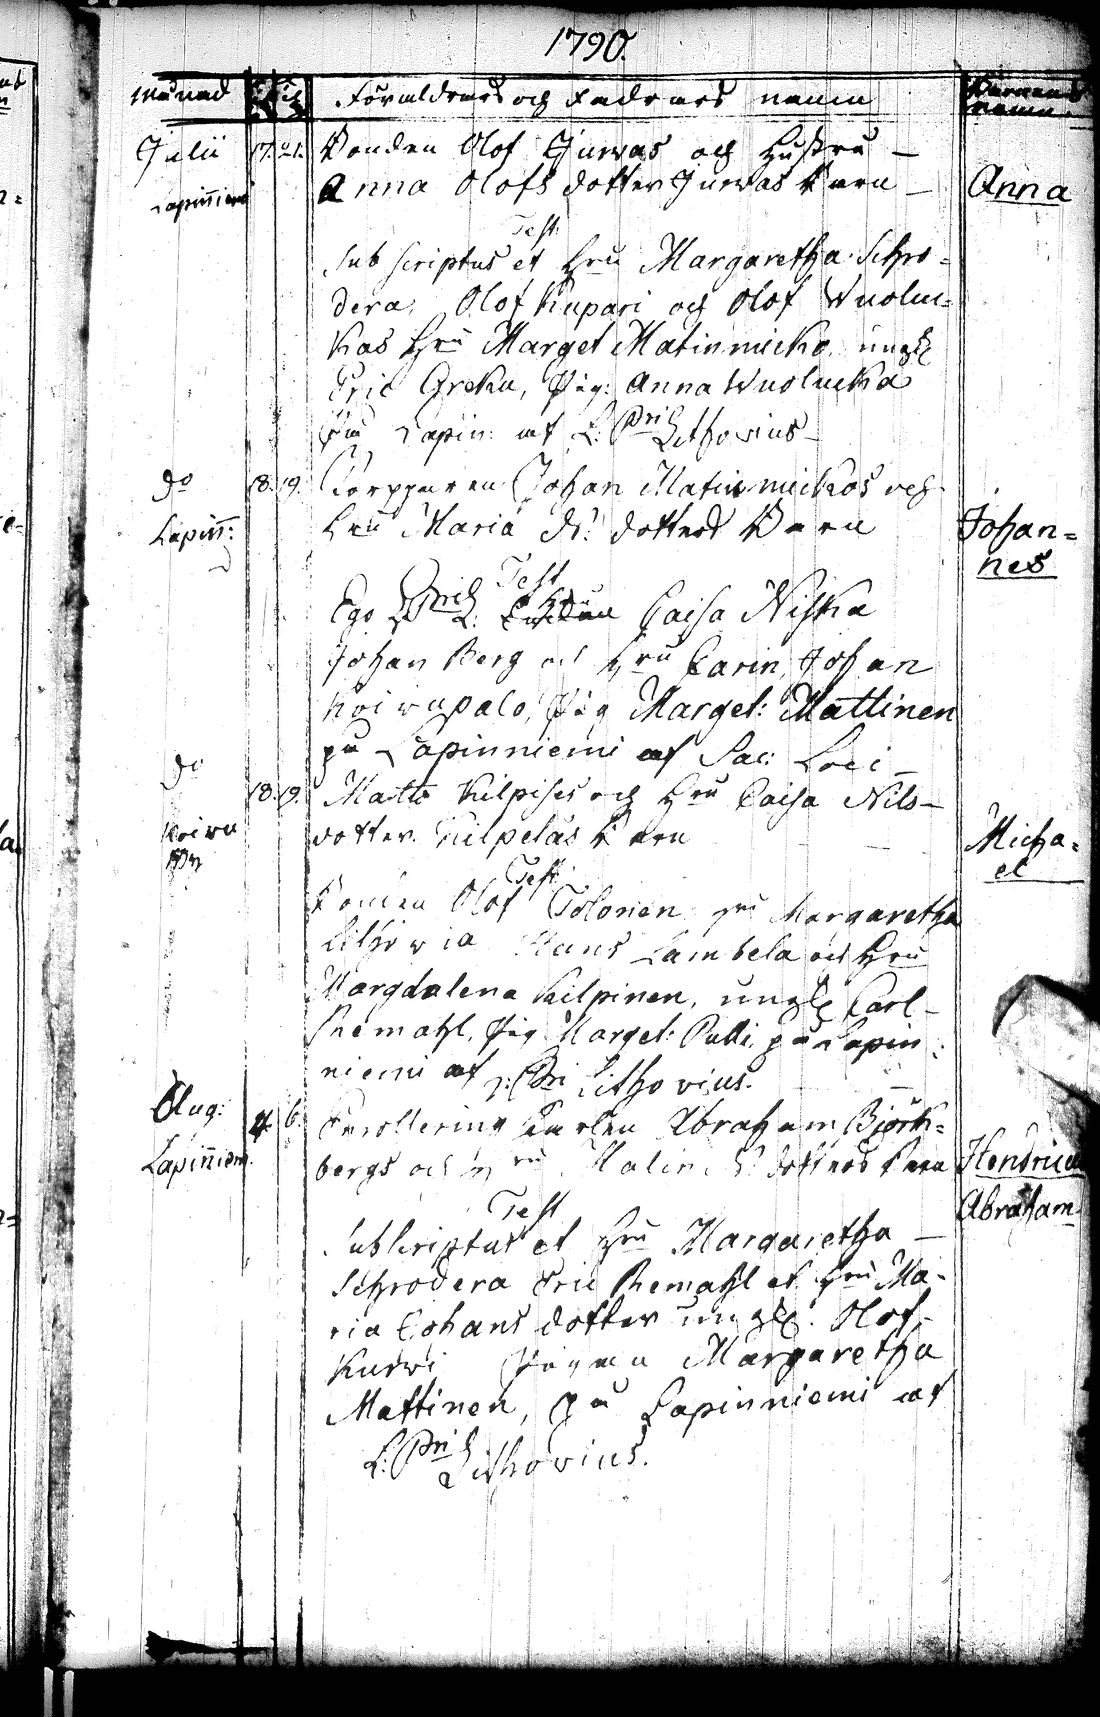 1790.
Månad
Föräldrars och Faderars namn
Barnens
namn.
Julii 17. 21. Bonden Olof Jurvas och Hustru –
Lapinniemi Anna Olofs dotter Jurvas Barn – Anna
Test.
Subscriptus et Hru Margaretha Schro-
dera, Olof Kupari och Olof Wuoluc-
kas Hru Marget Matinmicko, ungk
Eric Greku, Pig. Anna Wuolucka
på Lapin: af L: Pri Lithovius –
do 18. 19. Torpparen Johan Matinmickos och
Lapiñ: Hru Maria Ds dotters Barn Johan=
nes
Test
Ego L. Caisa Niska
Johan Berg och Hru Carin, Johan
Koivupalo, Pig Marget: Mattinen
på Lapinniemi af Sac: Loci –
do 18. 19. Matts Kilpises och Hru Caisa Nils-
Koivu dotter Kilpeläs Barn Micha=
el
Test
Bonden Olof Tolonen Hru Margaretha
Lithovia Hans Lambela och Hru
Margdalena Kilpinen, ungk Carl
Remahl, Pig Marget: Pulli, på Lapin=
niemi af L: Pri Lithovius.
Aug: 4. 6. Enrollering Karlen Abraham Björk=
Lapinniem. bergs och Hru Malin Ds dotters Barn Hendric
Abraham
Test
Subscriptus et Hru Margaretha –
Schrodera Eric Remahl et Hru Ma-
ria Johans dotter ungk. Olof
Kurvi Pigan Margaretha
Mattinen, på Lapinniemi af
L: Pri Lithovius.